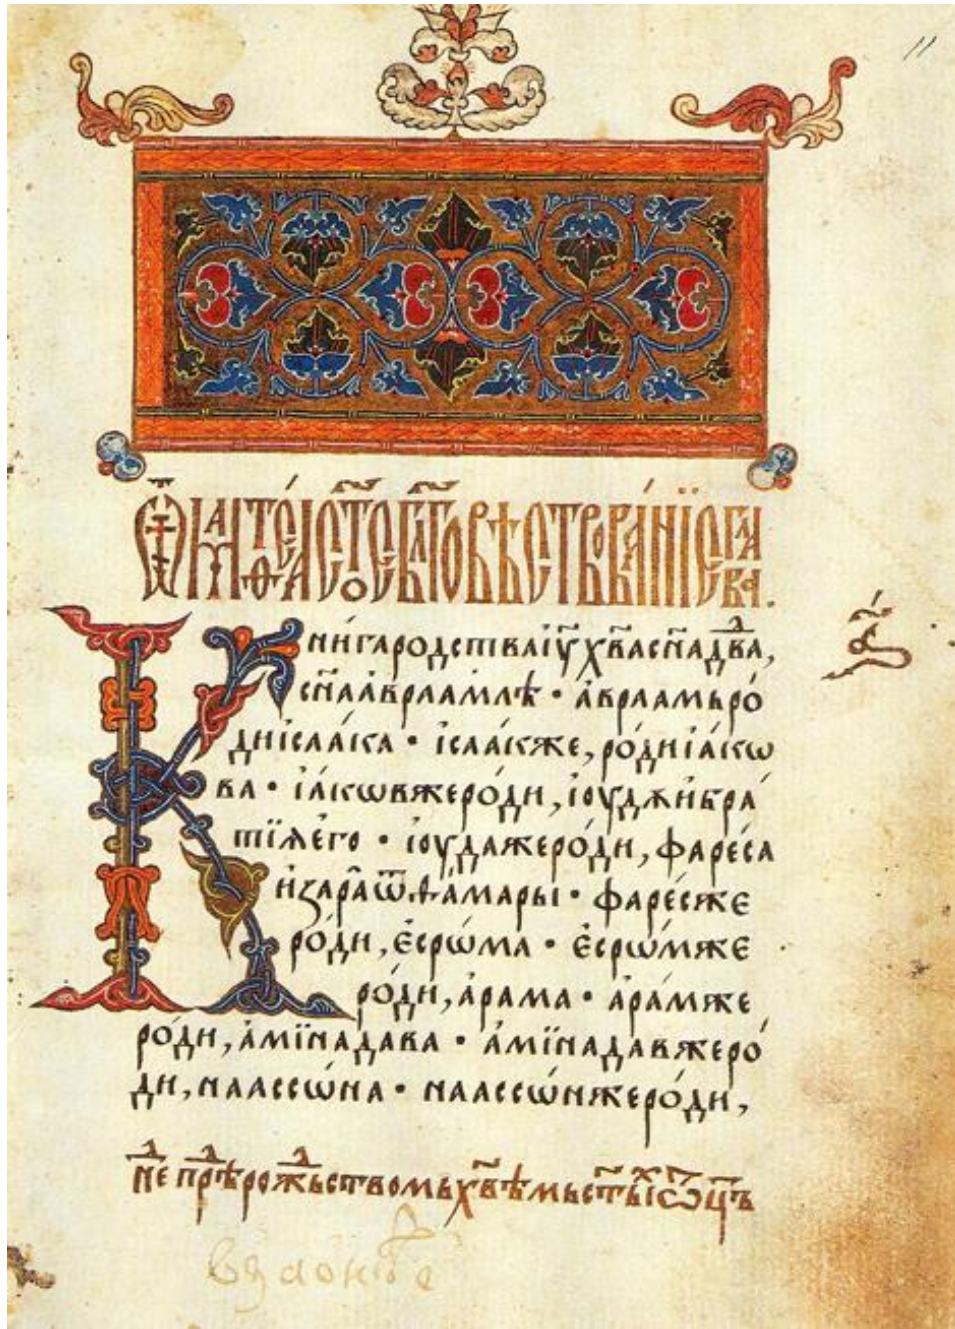 11
Ѿ матѳеа ст҃ое бл҃говѣствованїе глава.
а҃.
Книга родства і҆у҃ хв҃а сн҃а дв҃два,
сн҃а авраамлѣ • а҆враамъ ро́
ди і҆саа́ка • і҆саа́кже, ро́ди і҆а́кѡ
ва • і҆а́кѡвже ро́ди, і҆оуд ꙗ̀ и҆ бра́
тїꙗ е҆го • і҆оуда же ро́ди, фаре́са
и҆ зара̀ ѿ ѳа́мары • фаре́сже
ро́ди, е҆срѡ́ма • е҆срѡ́мже
ро́ди, а҆рама • а҆ра́мже
ро́ди, а҆мїнадава • а҆мїнадавже ро́
ди, наассѡ́на • наассѡ́нже ро́ди,
не прⷣѣ рожⷣьством хв҃ѣмь ст҃ыⷯ ѿц҃ъ